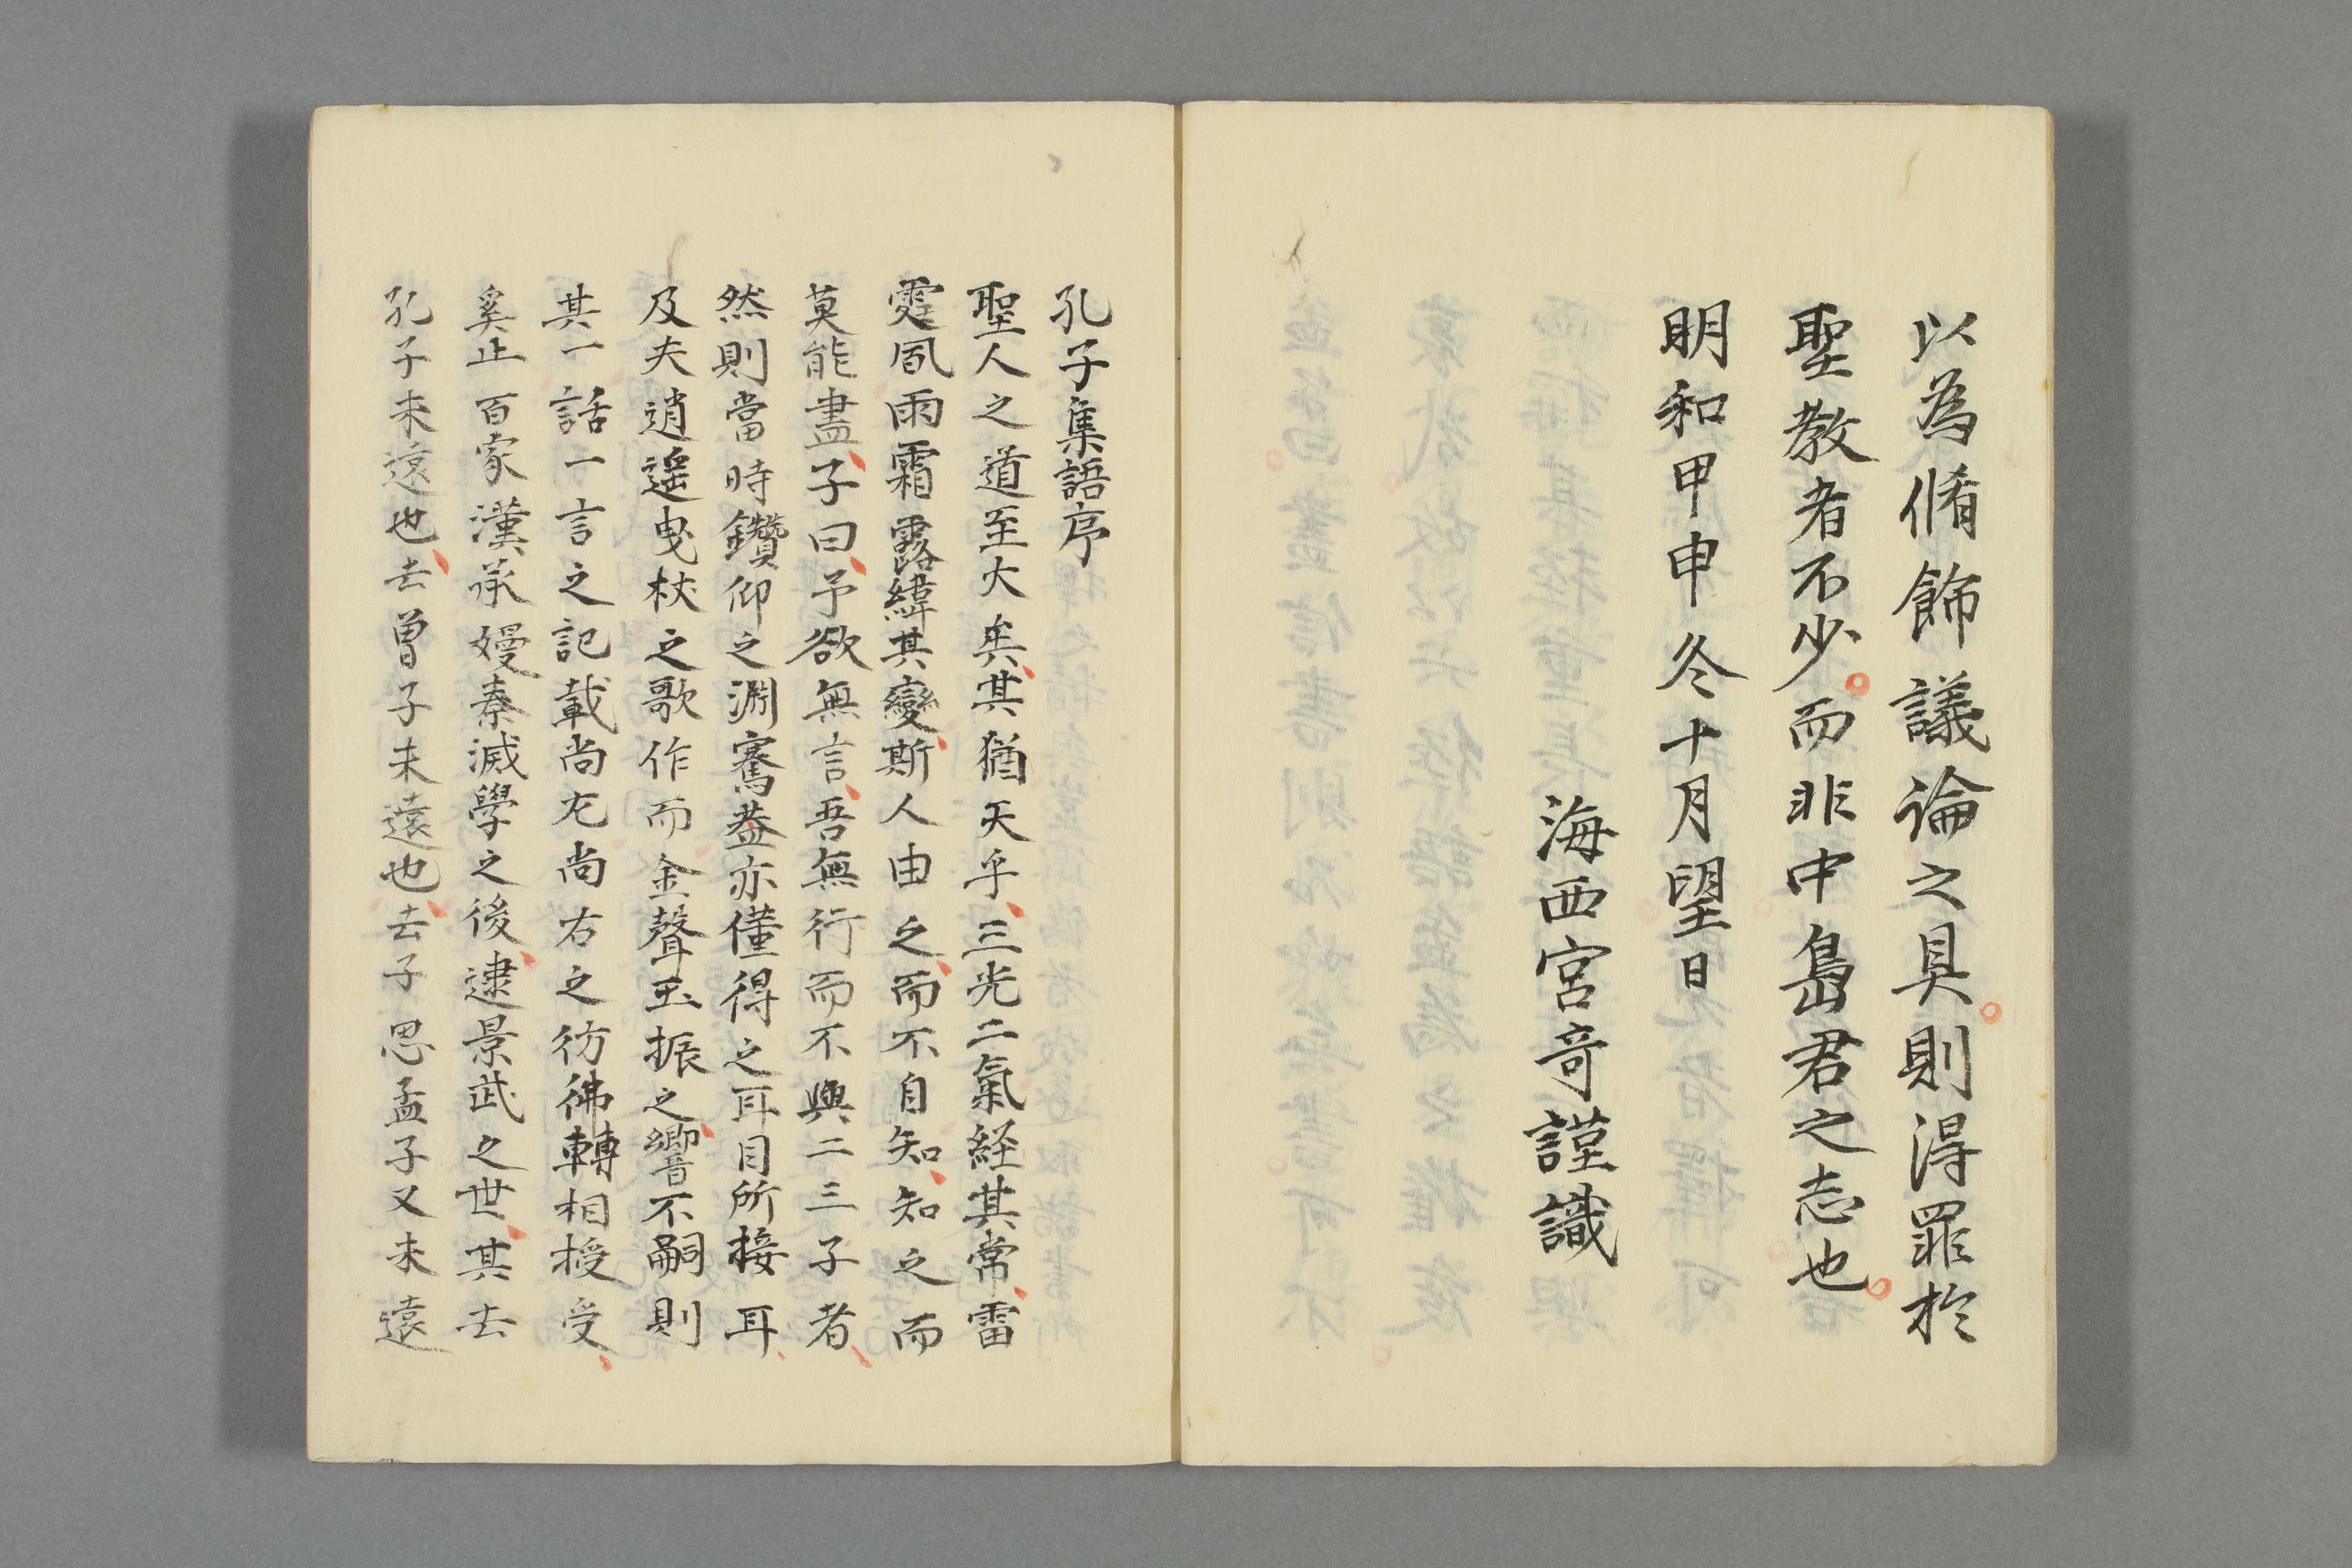 以為脩飾議論之具則得罪於
聖教者不少而非中島君之志也
明和甲申冬十月望日
海西宮奇謹識
孔子集語序
聖人之道至大矣其猶天乎三光二氣経其常雷
霆風雨霜露緯其變斯人由之而不自知知之而
莫能盡子曰予欲無言吾無行而不與二三子者
然則當時鑽仰之淵騫葢亦僅得之耳目所接耳
及夫逍遙曳杖之歌作而金聲玉振之響不嗣則
其一話一言之記載尚尤尚右之彷彿轉相授受
奚止百家漢承嫚秦滅學之後逮景武之世其去
孔子未遠也去曽子未遠也去子思孟子又未遠